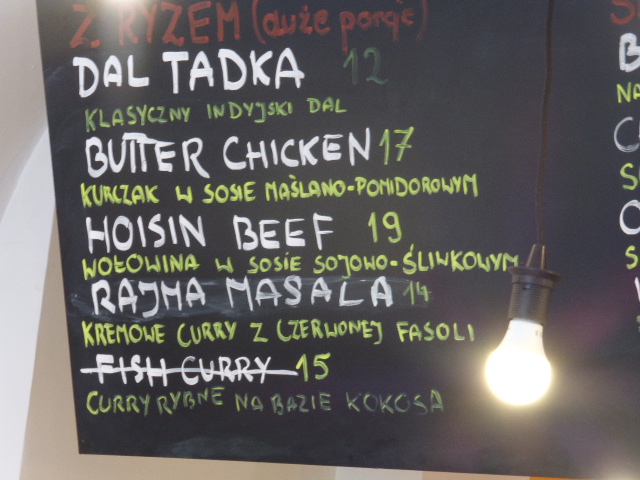 Z RYŻEM (duże porcje)
DAL TADKA 12
KLASYCZNY INDYJSKI DAL
BUTTER CHICKEN 17
KURCZAK W SOSIE MAŚLANO-POMIDOROWYM
HOISIN BEEF 19
WOŁOWINA W SOSIE SOJOWO-ŚLIWKOWYM
RAJMA MASALA 14
KREMOWE CURRY Z CZERWONEJ FASOLI
FISH CURRY 15
CURRY RYBNE NA BAZIE KOKOSA